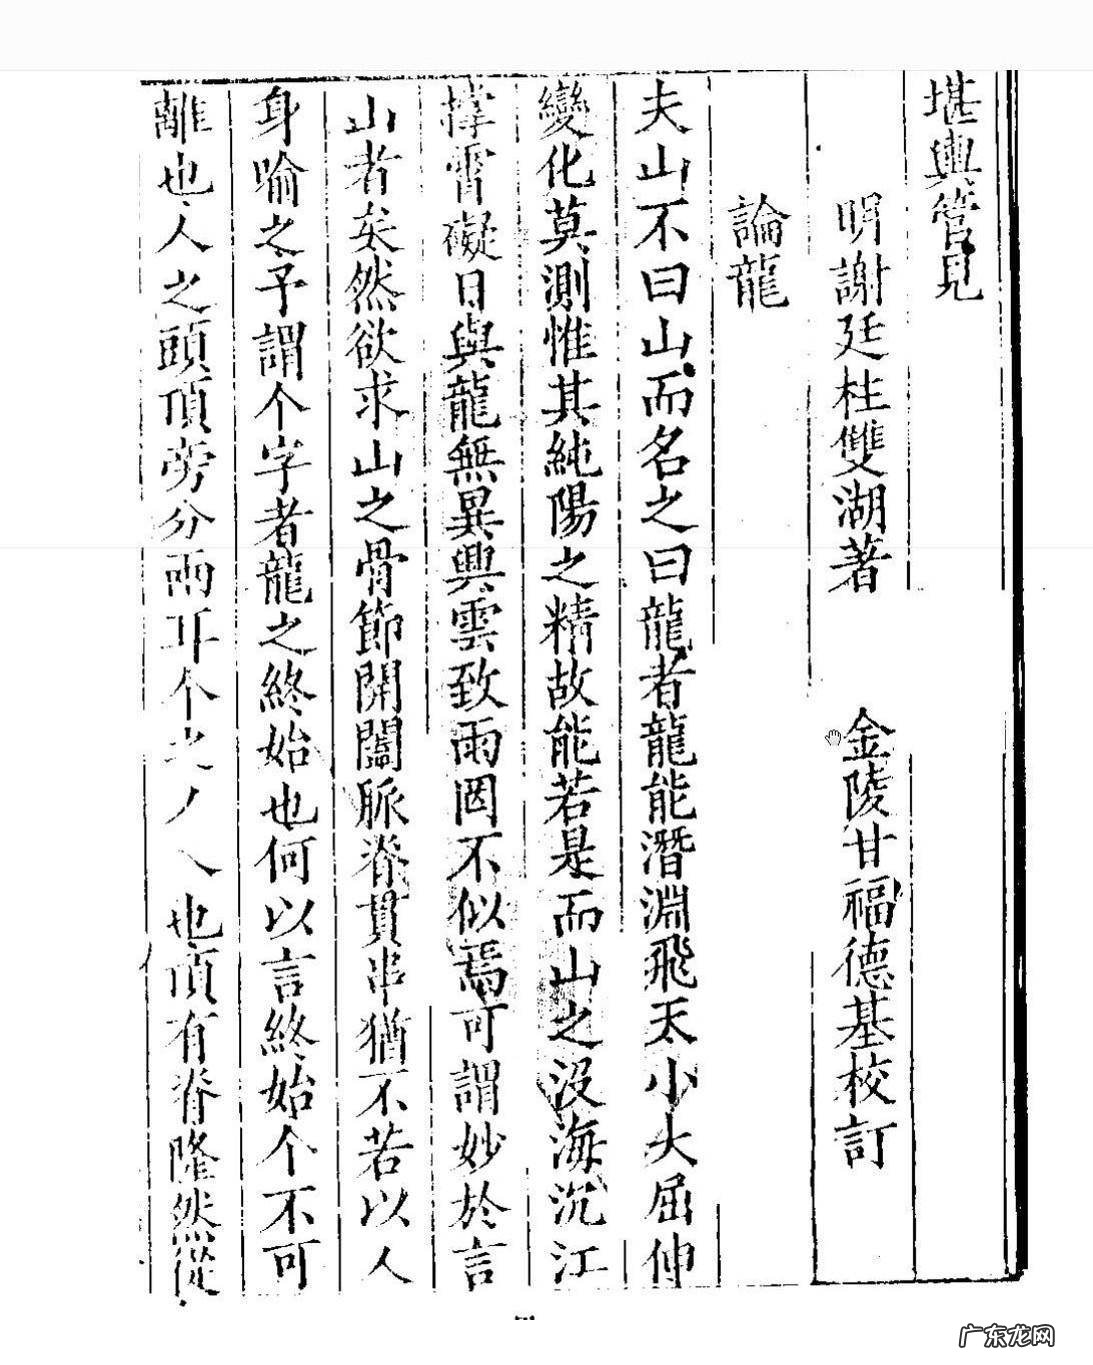 堪輿管見
明謝廷柱雙湖著 金陵甘福德基校訂
論龍
夫山不曰山而名之曰龍者龍能潛淵飛天小大屈伸
變化莫測惟其純陽之精故能若是而山之沒海沉江
撑霄礙日與龍無異興雲致雨罔不似焉可謂妙於言
山者矣然欲求山之骨節開闔脈脊貫串猶不若以人
身喻之予謂个字者龍之終始也何以言終始个不可
離也人之頭頂旁分兩耳个之丿乀也頂有脊隆然從
广东龙网